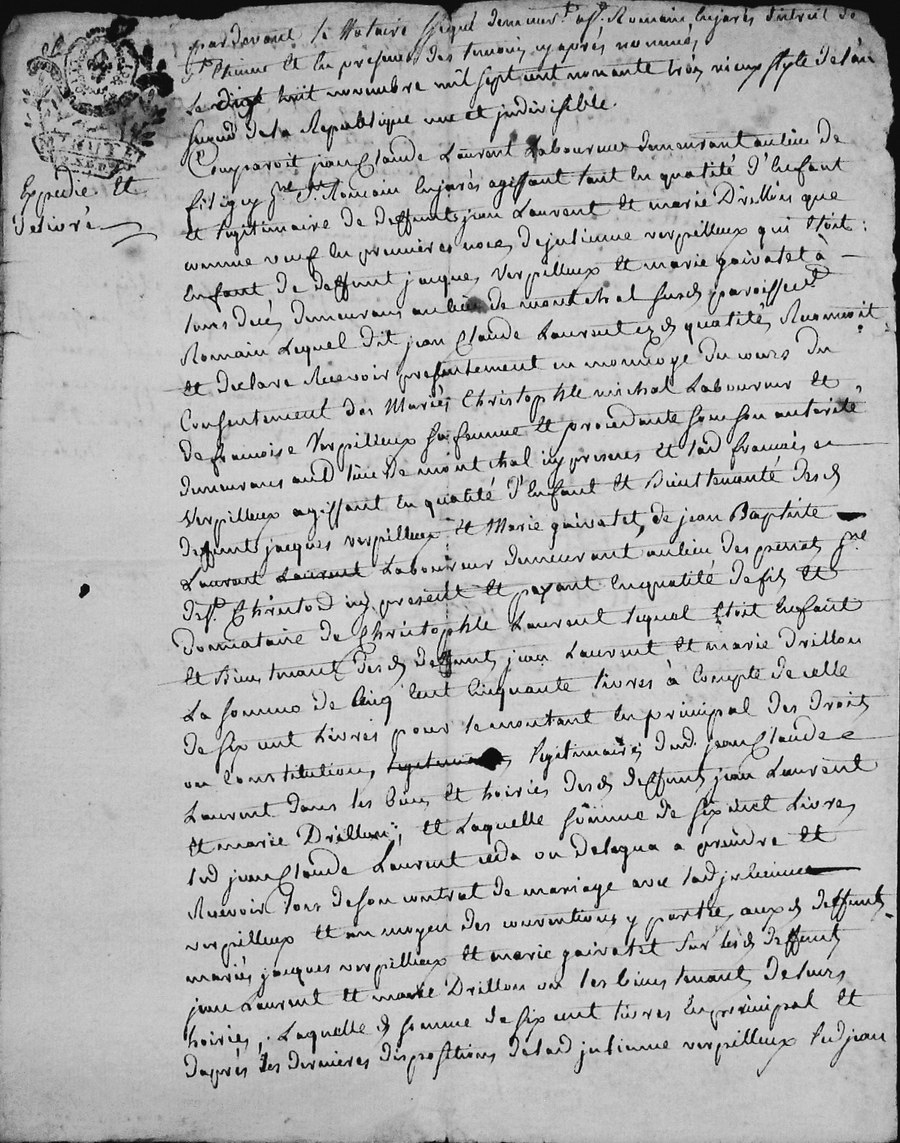 pardevant le Notaire ssigné demeurt. a St. Romain Enjarés district de
St. Etienne et En presence des temoins cy après nommés
Le dix huit novembre mil sept cent nonante trois vieux style de l'an
second de la Republique une et jndivisible.
Comparoit jean Claude Laurent Laboureur demeurant au lieu de
Expedie Et
delivré
filigny pne. St. Romain Enjarés agissant tant En qualité d'Enfant
et legitimaire de deffunts jean Laurent et marie Drillon que
comme veuf En premieres noces de julienne verpilleux qui Etoit
Enfant de deffunt jacques verpilleux Et marie gaivatet à
leurs decés demeurans au lieu de montchal susd paroisse St.
Romain Lequel dit jean Claude Laurent ezd qualités Reconnoit
et declare Recevoir presentement en monnoye du cours du
Consentement des Mariés Christophle michal Laboureur et
de francoise Verpilleux sa femme Et procedante sous son autorité
demeurans aud lieu de montchal icy presens et lad francoise
Verpilleux agissant En qualité d'Enfant Et Bientenante desd
deffunts jacques verpilleux Et Marie gaivatet, de jean Baptiste
Laurent Laurent Laboureur demeurant au lieu des pne.
de St. Christod icy present Et payant En qualité de fils Et
Donnataire de Christophle Laurent lequel Etoit Enfant
Et Bientenant desd deffunts jean Laurent Et marie Drillon
La somme de Cinq Cent Cinquante livres à Compte de celle
de six cent Livres pour le montant En principal des droits
ou Constitutions legitimaires legitimaires dud. jean Claude
Laurent dans les biens Et hoiries desd deffunts jean Laurent
et marie Drillon; et Laquelle somme de six cent Livres
led jean Claude Laurent ceda ou delegua a prendre et
Recevoir lors de son contrat de mariage avec lad julienne
verpilleux et au moyen des conventions y portées auxd deffunts
mariés jacques verpilleux et marie gaivatet sur lesd deffunts
jean Laurent Et marie Drillon ou les biens tenant de leurs
hoiries, Laquelle d somme de six cent livres En principal Et
d'après les dernieres dispositions de lad julienne verpilleux led jean